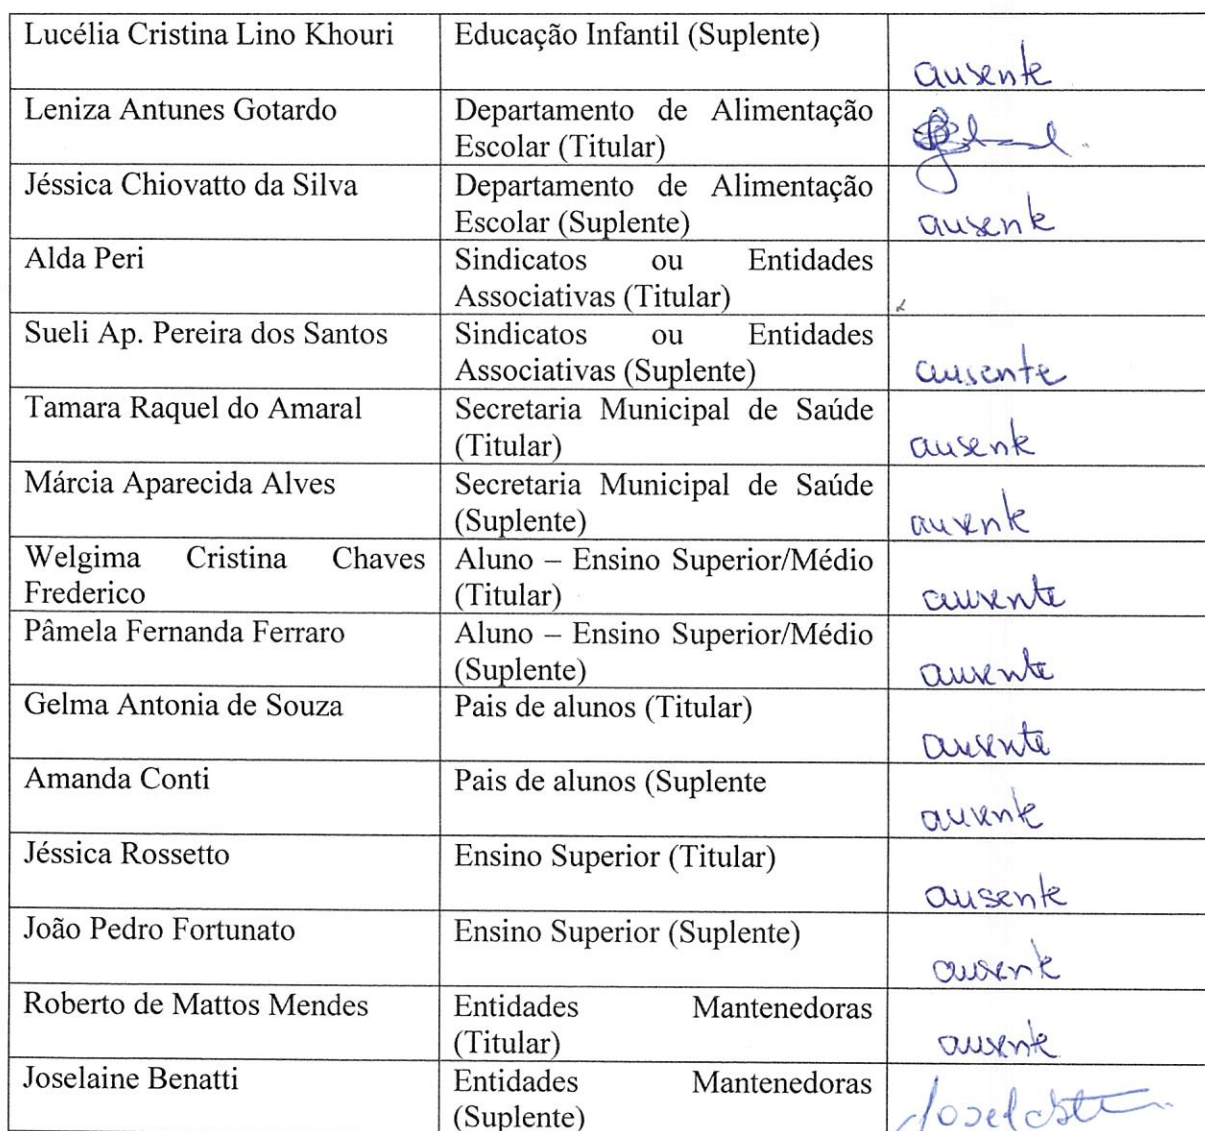 Lucélia Cristina Lino Khouri Educação Infantil (Suplente)
ausente
Leniza Antunes Gotardo Departamento de Alimentação
Escolar (Titular)
Jéssica Chiovatto da Silva Departamento de Alimentação
Escolar (Suplente) ausente
Alda Peri Sindicatos ou Entidades
Associativas (Titular)
Sueli Ap. Pereira dos Santos Sindicatos ou Entidades
Associativas (Suplente) ausente
Tamara Raquel do Amaral Secretaria Municipal de Saúde
(Titular) ausente
Márcia Aparecida Alves Secretaria Municipal de Saúde
(Suplente) ausente
Welgima Cristina Chaves Aluno – Ensino Superior/Médio
Frederico (Titular) ausente
Pâmela Fernanda Ferraro Aluno – Ensino Superior/Médio
(Suplente) ausente
Gelma Antonia de Souza Pais de alunos (Titular)
ausente
Amanda Conti Pais de alunos (Suplente
ausente
Jéssica Rossetto Ensino Superior (Titular)
ausente
João Pedro Fortunato Ensino Superior (Suplente)
ausente
Roberto de Mattos Mendes Entidades Mantenedoras
(Titular) ausente
Joselaine Benatti Entidades Mantenedoras
(Suplente)